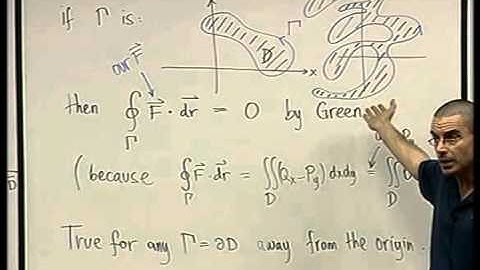 if Γ is:
Γ
D
x
our F⃗
then ∮_Γ F⃗ · dr⃗ = 0 by Green
(because ∮_Γ F⃗ · dr⃗ = ∬_D (Q_x - P_y) dxdy = ∬_D 0
True for any Γ = ∂D away from the origin.